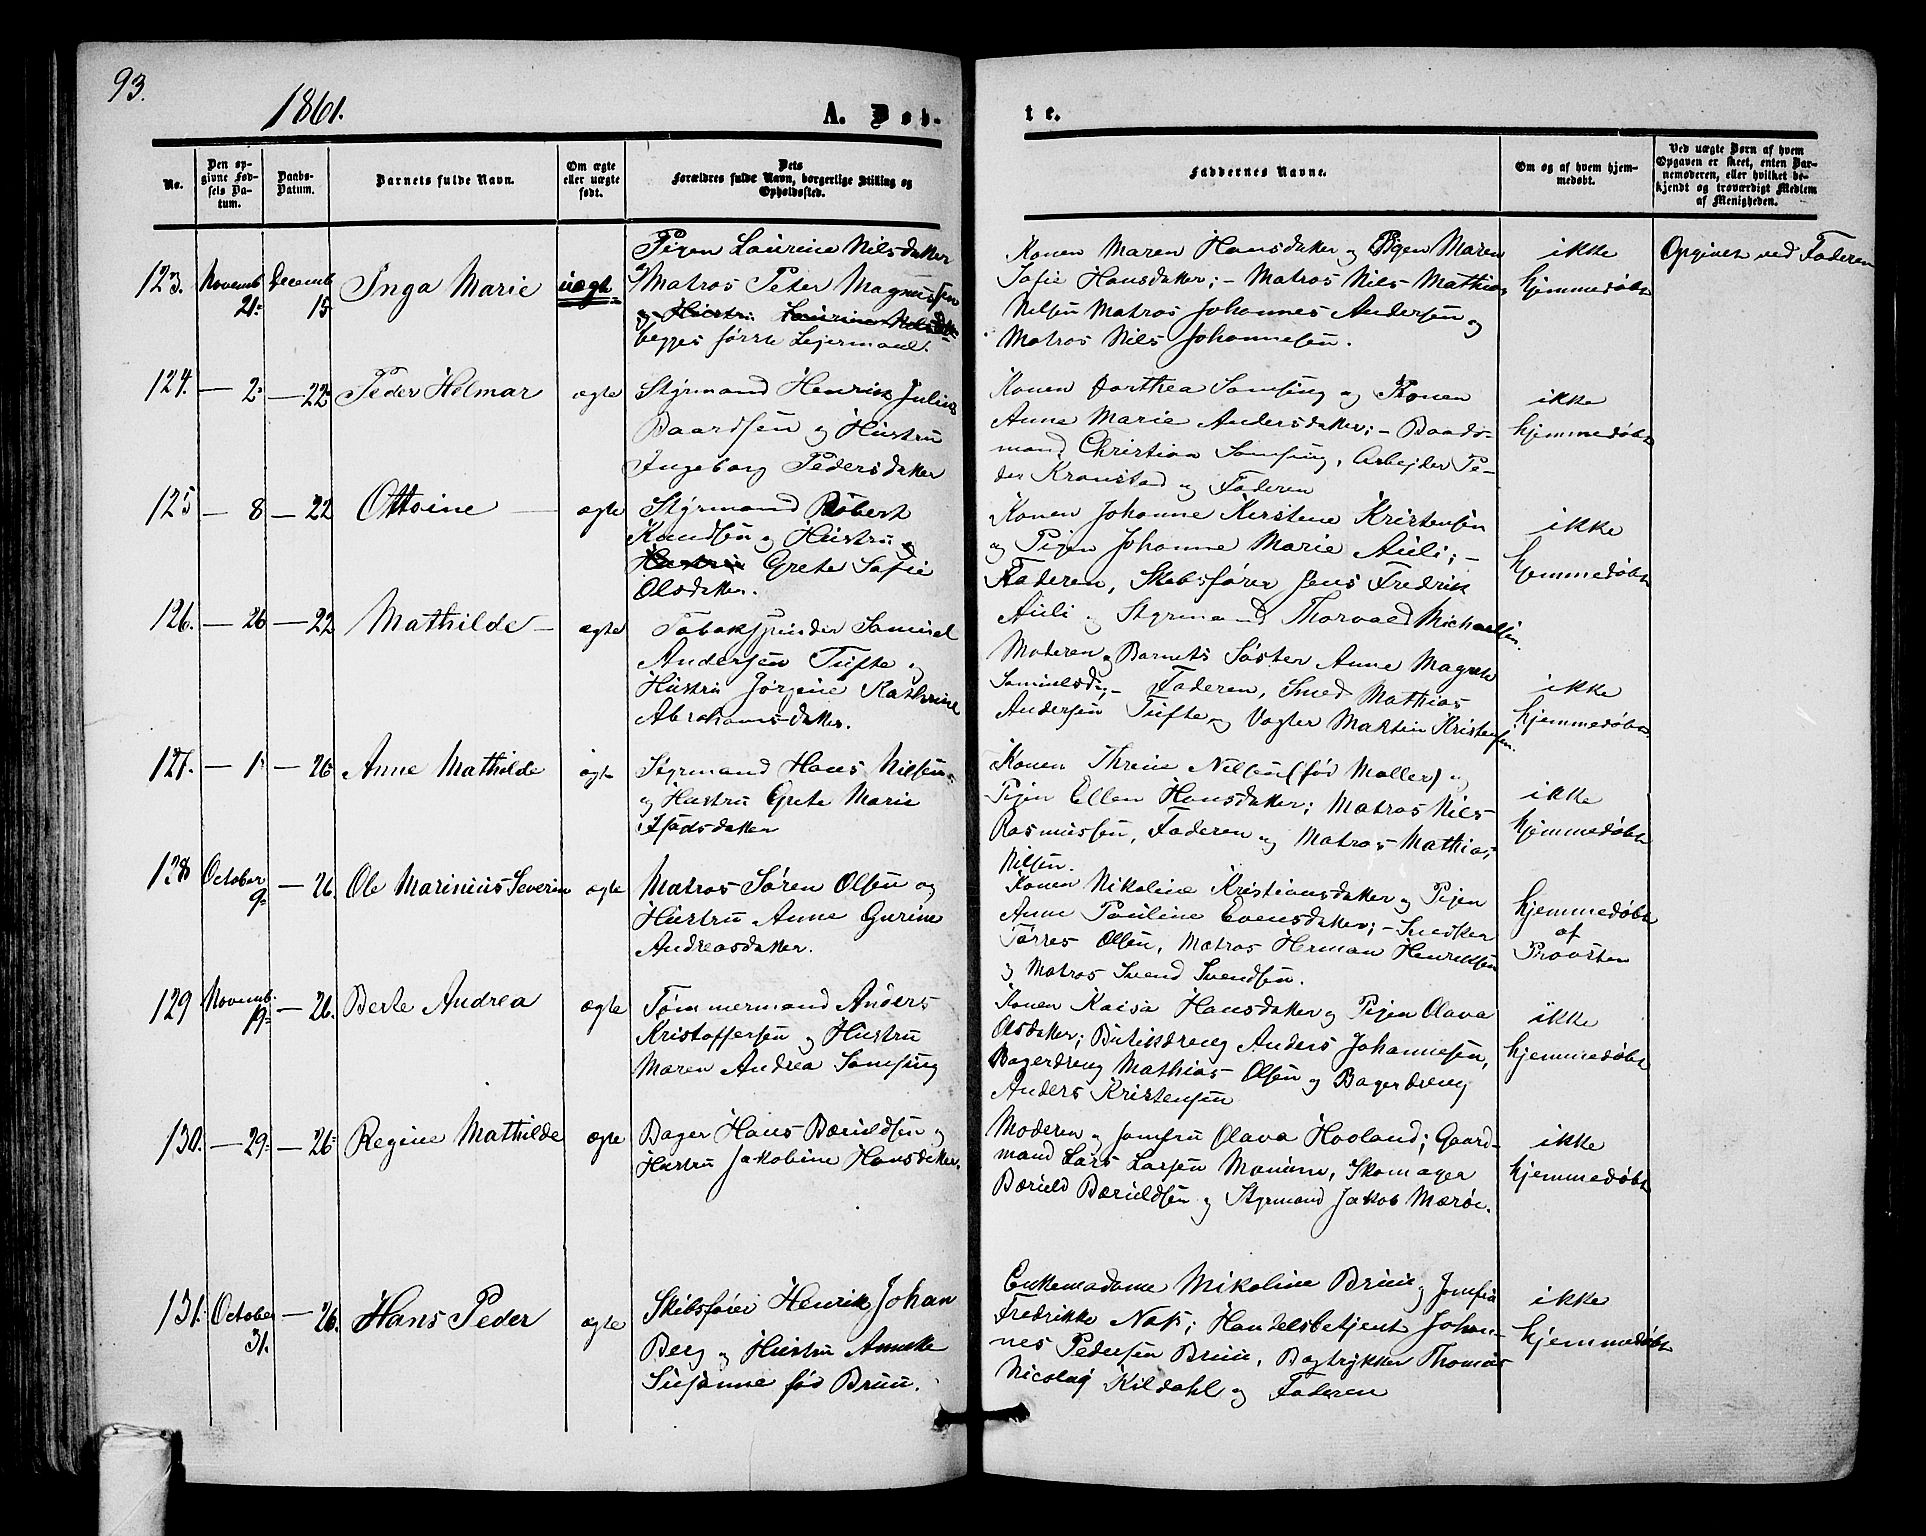 93.
1861.
A. Døb-
te.
No.
Den op-
givne Fød-
sels Da-
tum.
Daabs-
Datum.
Barnets fulde Navn.
Om ægte
eller uægte
født.
Dets
Forældres fulde Navn, borgerlige Stilling og
Opholdssted.
Faddernes Navne.
Om og af hvem hjem-
medøbt.
Ved uægte Børn af hvem
Opgaven er skeet, enten Bar-
nemoderen, eller hvilket be-
kjendt og troværdigt Medlem
af Menigheden.
123. Novemb 21- Decemb 15 Inga Marie uægt-
Pigen Laurine Nilsdatter
Matros Peter Magnussen
og Hustru Laurine
begges første Lejermaal.
Konen Maren Hansdatter og Pigen Maren
Sofie Hansdatter; - Matros Nils Mathias
Nilsen Matros Johannes Andersen og
Matros Nils Johannesen.
ikke
hjemmedøbt
Opgivet ved Faderen
124. — 2- — 22- Peder Helmar ægte
Styrmand Henrik Julius
Baardsen og Hustru
Ingeborg Pedersdatter
Konen Dorthea Samsing og Konen
Anne Marie Andersdatter; - Baads-
mand Christian Samsing, Arbejder Pe-
der Kronstad og Faderen
ikke
hjemmedøbt
125 — 8 — 22 Ottoine — ægte
Styrmand Robert
Knudsen og Hustru
Hustru Grete Sofie
Olsdatter.
Konen Johanne Kerstene Kristensen
og Pigen Johanne Marie Auli; -
Faderen, Skibsfører Jens Fredrik
Auli og Styrmand Thorvald Michaelsen.
ikke
hjemmedøbt
126. — 26 — 22 Mathilde — ægte
Tobakspinder Samuel
Andersen Tufte og
Hustru Jørgine Kathrine
Abrahamsdatter.
Moderen og Barnets Søster Anne Magrete
Samuelsd; - Faderen, Smed Mathias
Andersen Tufte og Vogter Martin Kristensen.
ikke
hjemmedøbt
127. — 1- — 26 Anne Mathilde ægte
Styrmand Hans Nilsen
og Hustru Grete Marie
Isaksdatter
Konen Threne Nilsen (fød Møller) og
Pigen Ellen Hansdatter; Matros Nils
Rasmussen, Faderen og Matros Mathias
Nilsen.
ikke
hjemmedøbt
128 October 9- — 26. Ole Marinius Severin ægte
Matros Søren Olsen og
Hustru Anne Gurine
Andreasdatter.
Konen Nikoline Kristiansdatter og Pigen
Anne Pauline Evensdatter; - Snedker
Tørres Olsen, Matros Herman Henriksen
og Matros Svend Svendsen.
hjemmedøbt
af
Provsten
129 Novemb. 19- — 26. Berte Andrea ægte
Tømmermand Anders
Kristoffersen og Hustru
Maren Andrea Samsing
Konen Kaisa Hansdatter og Pigen Olava
Olsdatter; Butikdreng Anders Johannesen,
Bagerdreng Mathias Olsen og Bagerdreng
Anders Kristensen
ikke
hjemmedøbt
130. — 29- — 26- Regine Mathilde ægte
Bager Hans Bæruldsen og
Hustru Jakobine Hansdatter.
Moderen og Jomfru Olava Hovland; Gaard-
mand Lars Larsen, Skomager
Bæruld Bæruldsen og Styrmand Jakob Mærøe.
ikke
hjemmedøbt
131. October 31. — 26. Hans Peder ægte
Skibsfører Henrik Johan
Berg og Hustru Annette
Susanne fød Bruu.
Enkemadame Nikoline Bruu og Jomfru
Fredrikke Nap; Handelsbetjent Johan-
nes Pedersen Bruu, Bogtrykker Thomas
Nicolaj Kildahl og Faderen
ikke
hjemmedøbt